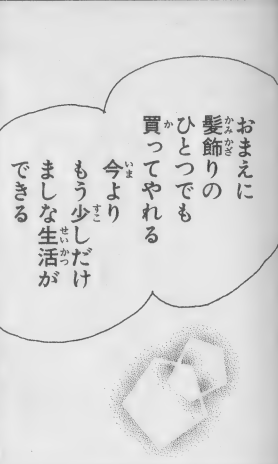 おまえに
髪飾りの
ひとつでも
買ってやれる
今より
もう少しだけ
ましな生活が
できる